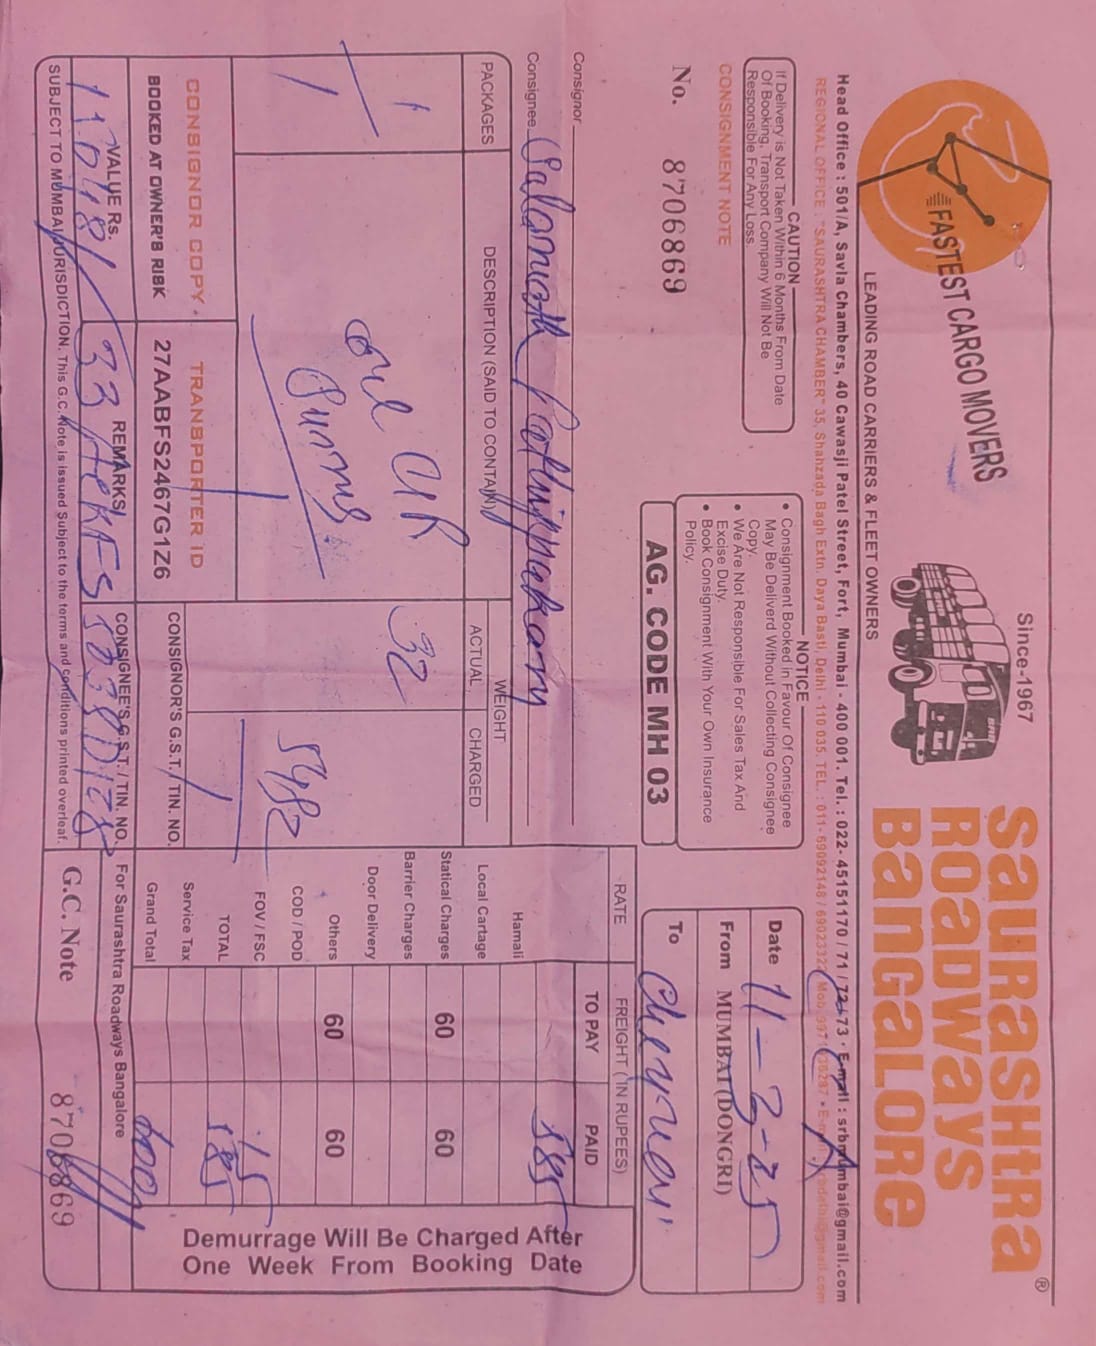 FASTEST CARGO MOVERS
Since-1967
SAURASHTRA ®
ROADWAYS
BANGALORE
LEADING ROAD CARRIERS & FLEET OWNERS
Head Office : 501/A, Savla Chambers, 40 Cawasji Patel Street, Fort, Mumbai - 400 001. Tel. : 022- 45151170 / 71 / 72 73 · E-mail : srbmumbai@gmail.com
REGIONAL OFFICE : "SAURASHTRA CHAMBER" 35, Shahzada Bagh Extn. Daya Basti, Delhi - 110 035. TEL. : 011-
CAUTION
If Delivery is Not Taken Within 6 Months From Date
Of Booking, Transport Company Will Not Be
Responsible For Any Loss.
CONSIGNMENT NOTE
No. 8706869
NOTICE
• Consignment Booked in Favour Of Consignee
May Be Deliverd Without Collecting Consignee
Copy.
• We Are Not Responsible For Sales Tax And
Excise Duty.
• Book Consignment With Your Own Insurance
Policy.
AG. CODE MH 03
Date 11-2-25
From MUMBAI (DONGRI)
To
Consignor
Consignee
PACKAGES
DESCRIPTION (SAID TO CONTAIN)
WEIGHT
ACTUAL
CHARGED
1
32
RATE
FREIGHT (IN RUPEES)
TO PAY
PAID
Hamali
Local Cartage
Statical Charges 60 60
Barrier Charges
Door Delivery
Others 60 60
COD / POD
FOV / FSC 15
TOTAL
Service Tax
Grand Total
Demurrage Will Be Charged After
One Week From Booking Date
CONSIGNOR COPY.
BOOKED AT OWNER'S RISK
TRANSPORTER ID
27AABFS2467G1Z6
CONSIGNOR'S G.S.T. / TIN. NO.
VALUE Rs.
REMARKS
CONSIGNEE'S G.S.T. / TIN. NO.
For Saurashtra Roadways Bangalore
SUBJECT TO MUMBAI JURISDICTION. This G.C. Note is issued Subject to the terms and conditions printed overleaf.
G.C. Note 8706869